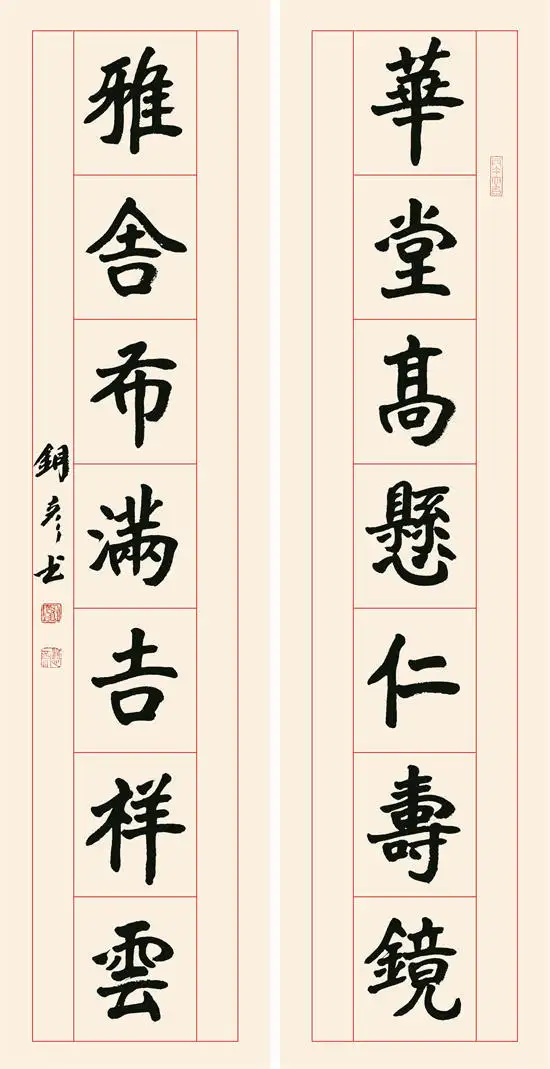 華堂高懸仁壽鏡
雅舍布滿吉祥雲
銅彦书